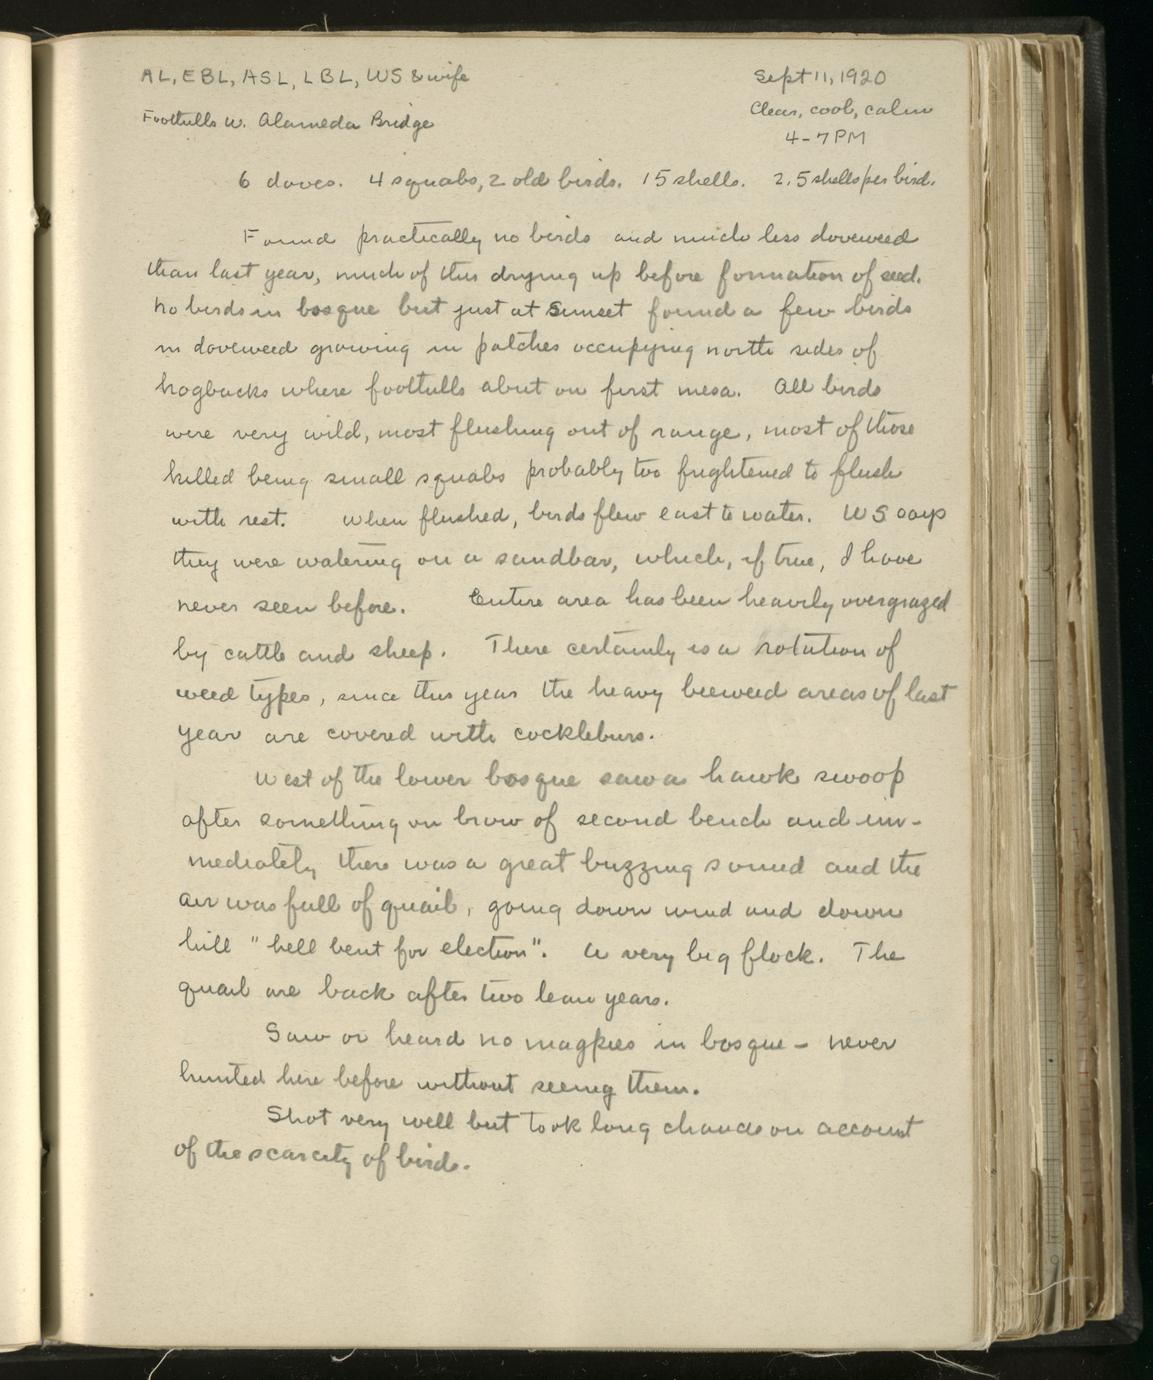 AL, EBL, ASL, LBL, WS & wife
Sept 11, 1920
Foothills W. Alameda Bridge
Clear, cool, calm
4-7 PM
6 doves. 4 squabs, 2 old birds. 15 shells. 2.5 shells per bird.
Found practically no birds and much less doveweed
than last year, much of this drying up before formation of seed.
No birds in bosque but just at sunset found a few birds
in doveweed growing in patches occupying north sides of
hogbacks where foothills abut on first mesa. All birds
were very wild, most flushing out of range, most of those
killed being small squabs probably too frightened to flush
with rest. When flushed, birds flew east to water. WS says
they were watering on a sandbar, which, if true, I have
never seen before. Entire area has been heavily overgrazed
by cattle and sheep. There certainly is a rotation of
weed types, since this year the heavy beeweed areas of last
year are covered with cockleburs.
West of the lower bosque saw a hawk swoop
after something on brow of second bench and im-
mediately there was a great buzzing sound and the
air was full of quail, going down wind and down
hill "hell bent for election". A very big flock. The
quail are back after two lean years.
Saw or heard no magpies in bosque – never
hunted here before without seeing them.
Shot very well but took long chances on account
of the scarcity of birds.